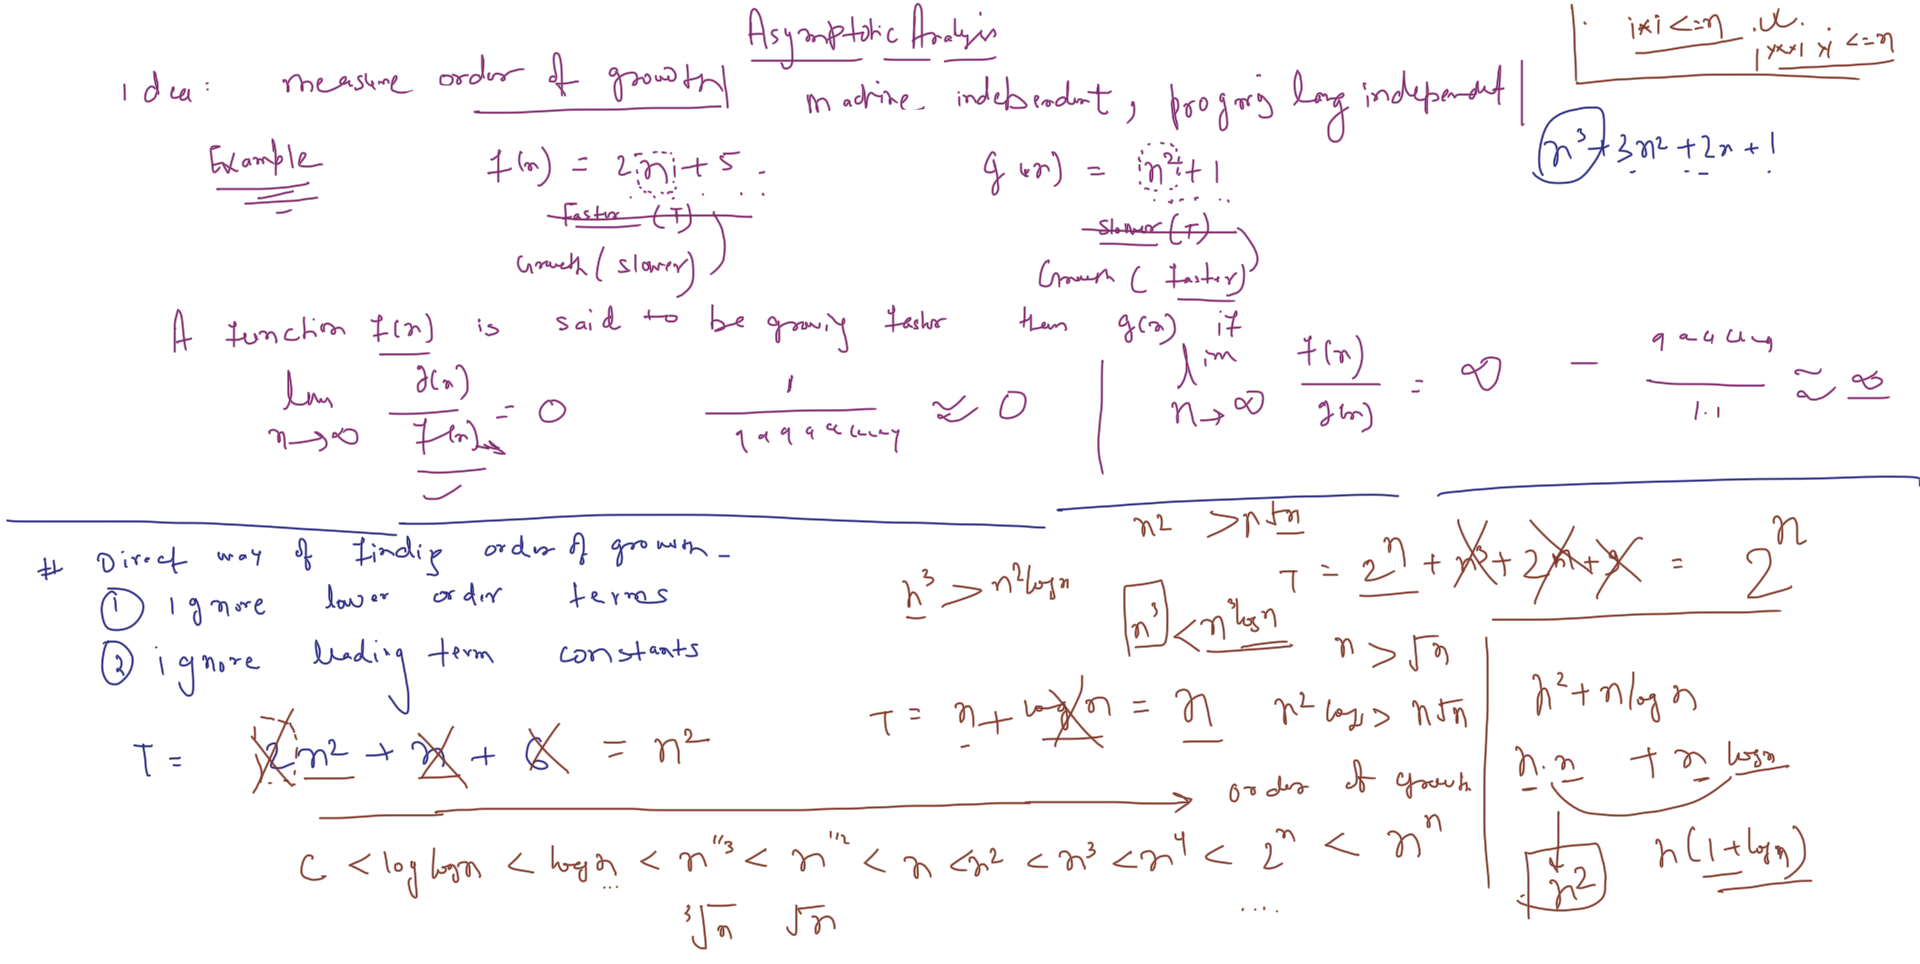 Asymptotic Analysis
i*i <= n
<= n
Idea: measure order of growth machine independent, prog lang independent
n³ + 3n² + 2n + 1
Example f(n) = 2n + 5 g(n) = n² + 1
Faster (T) Slower (T)
Growth (slower) Growth (faster)
A function f(n) is said to be growing faster than g(n) if
lim n→∞ g(n)/f(n) = 0
≈ 0
lim n→∞ f(n)/g(n) = ∞
≈ ∞
# Direct way of finding order of growth -
① Ignore lower order terms
② ignore leading term constants
T = 2n² + n + 6 = n²
n² > n√n
n³ > n² log n
n³ < n³ log n
T = 2ⁿ + n³ + 2n + = 2ⁿ
n > √n
T = n + log n = n
n² log > n√n
n² + n log n
n.n + n log n
n² n(1 + log n)
order of growth
C < log log n < log n < n^1/3 < n^1/2 < n < n² < n³ < n⁴ < 2ⁿ < nⁿ
...
³√n √n
....